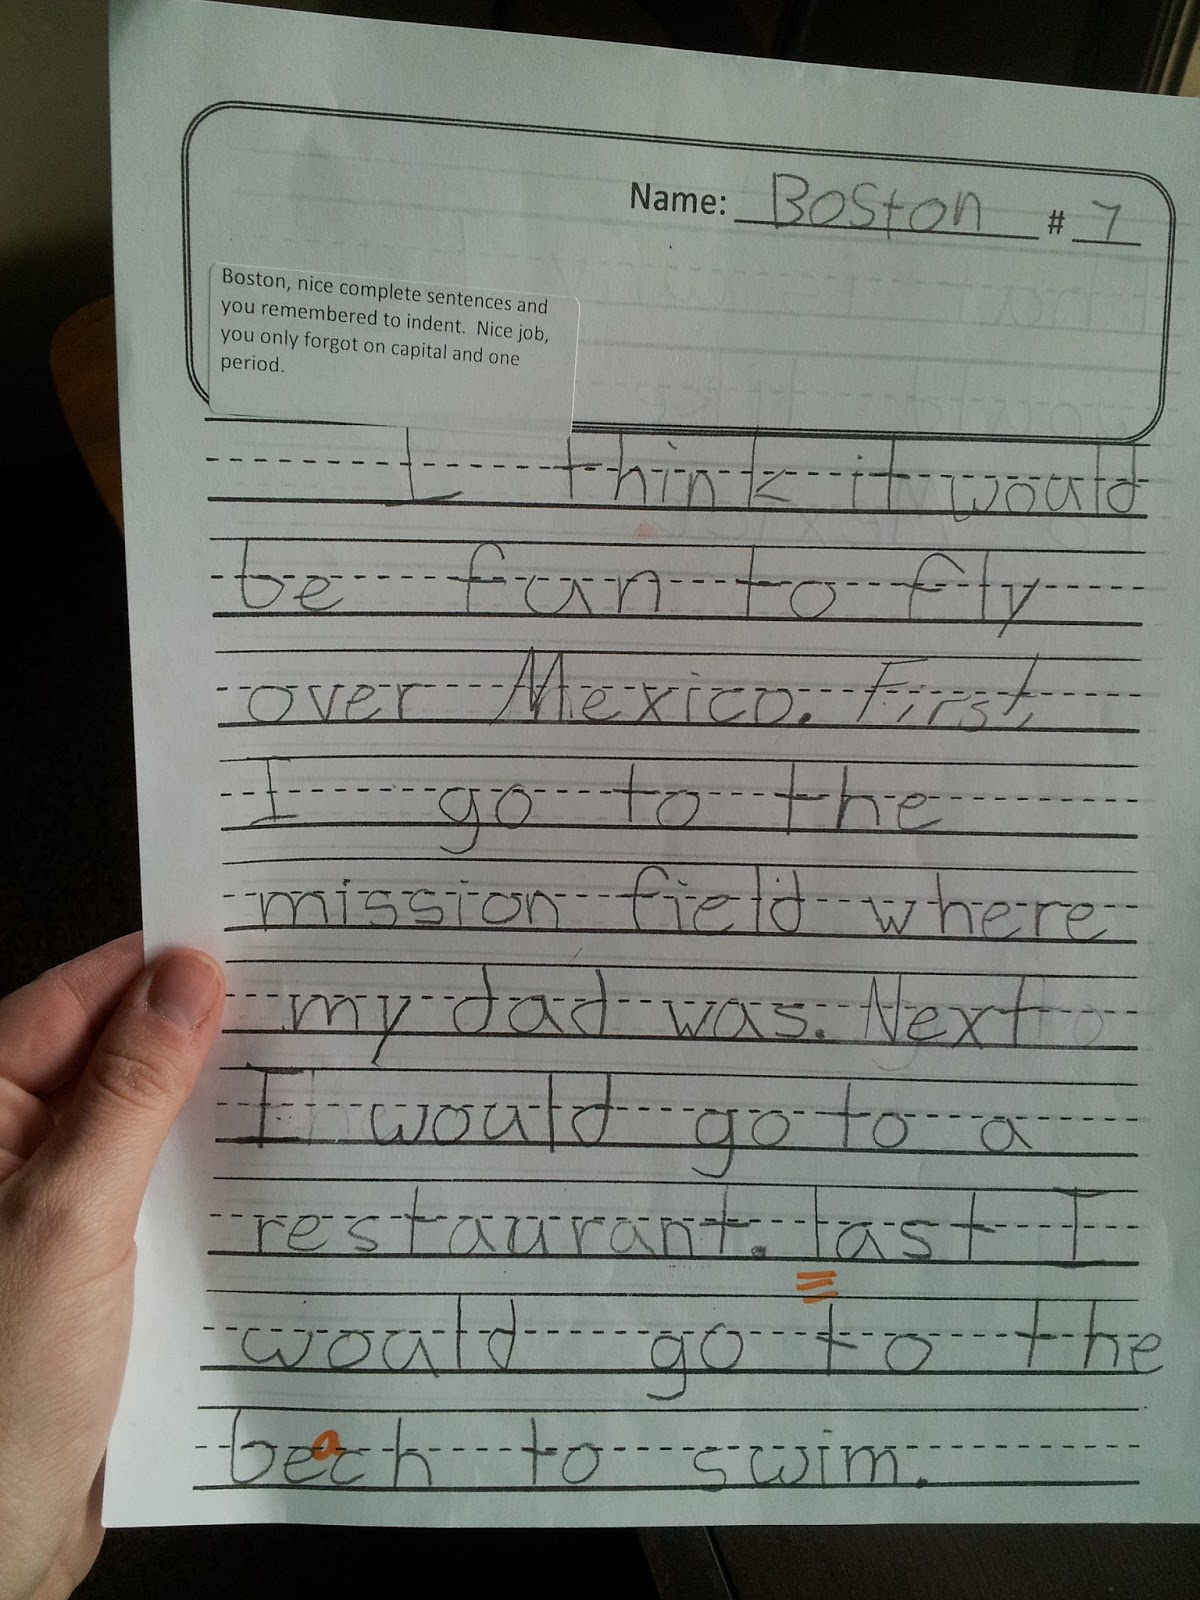 Name: Boston # 7
Boston, nice complete sentences and
you remembered to indent. Nice job,
you only forgot on capital and one
period.
I think it would
be fun to fly
over Mexico. First,
I go to the
mission field where
my dad was. Next
I would go to a
restaurant. last I
would go to the
beach to swim.